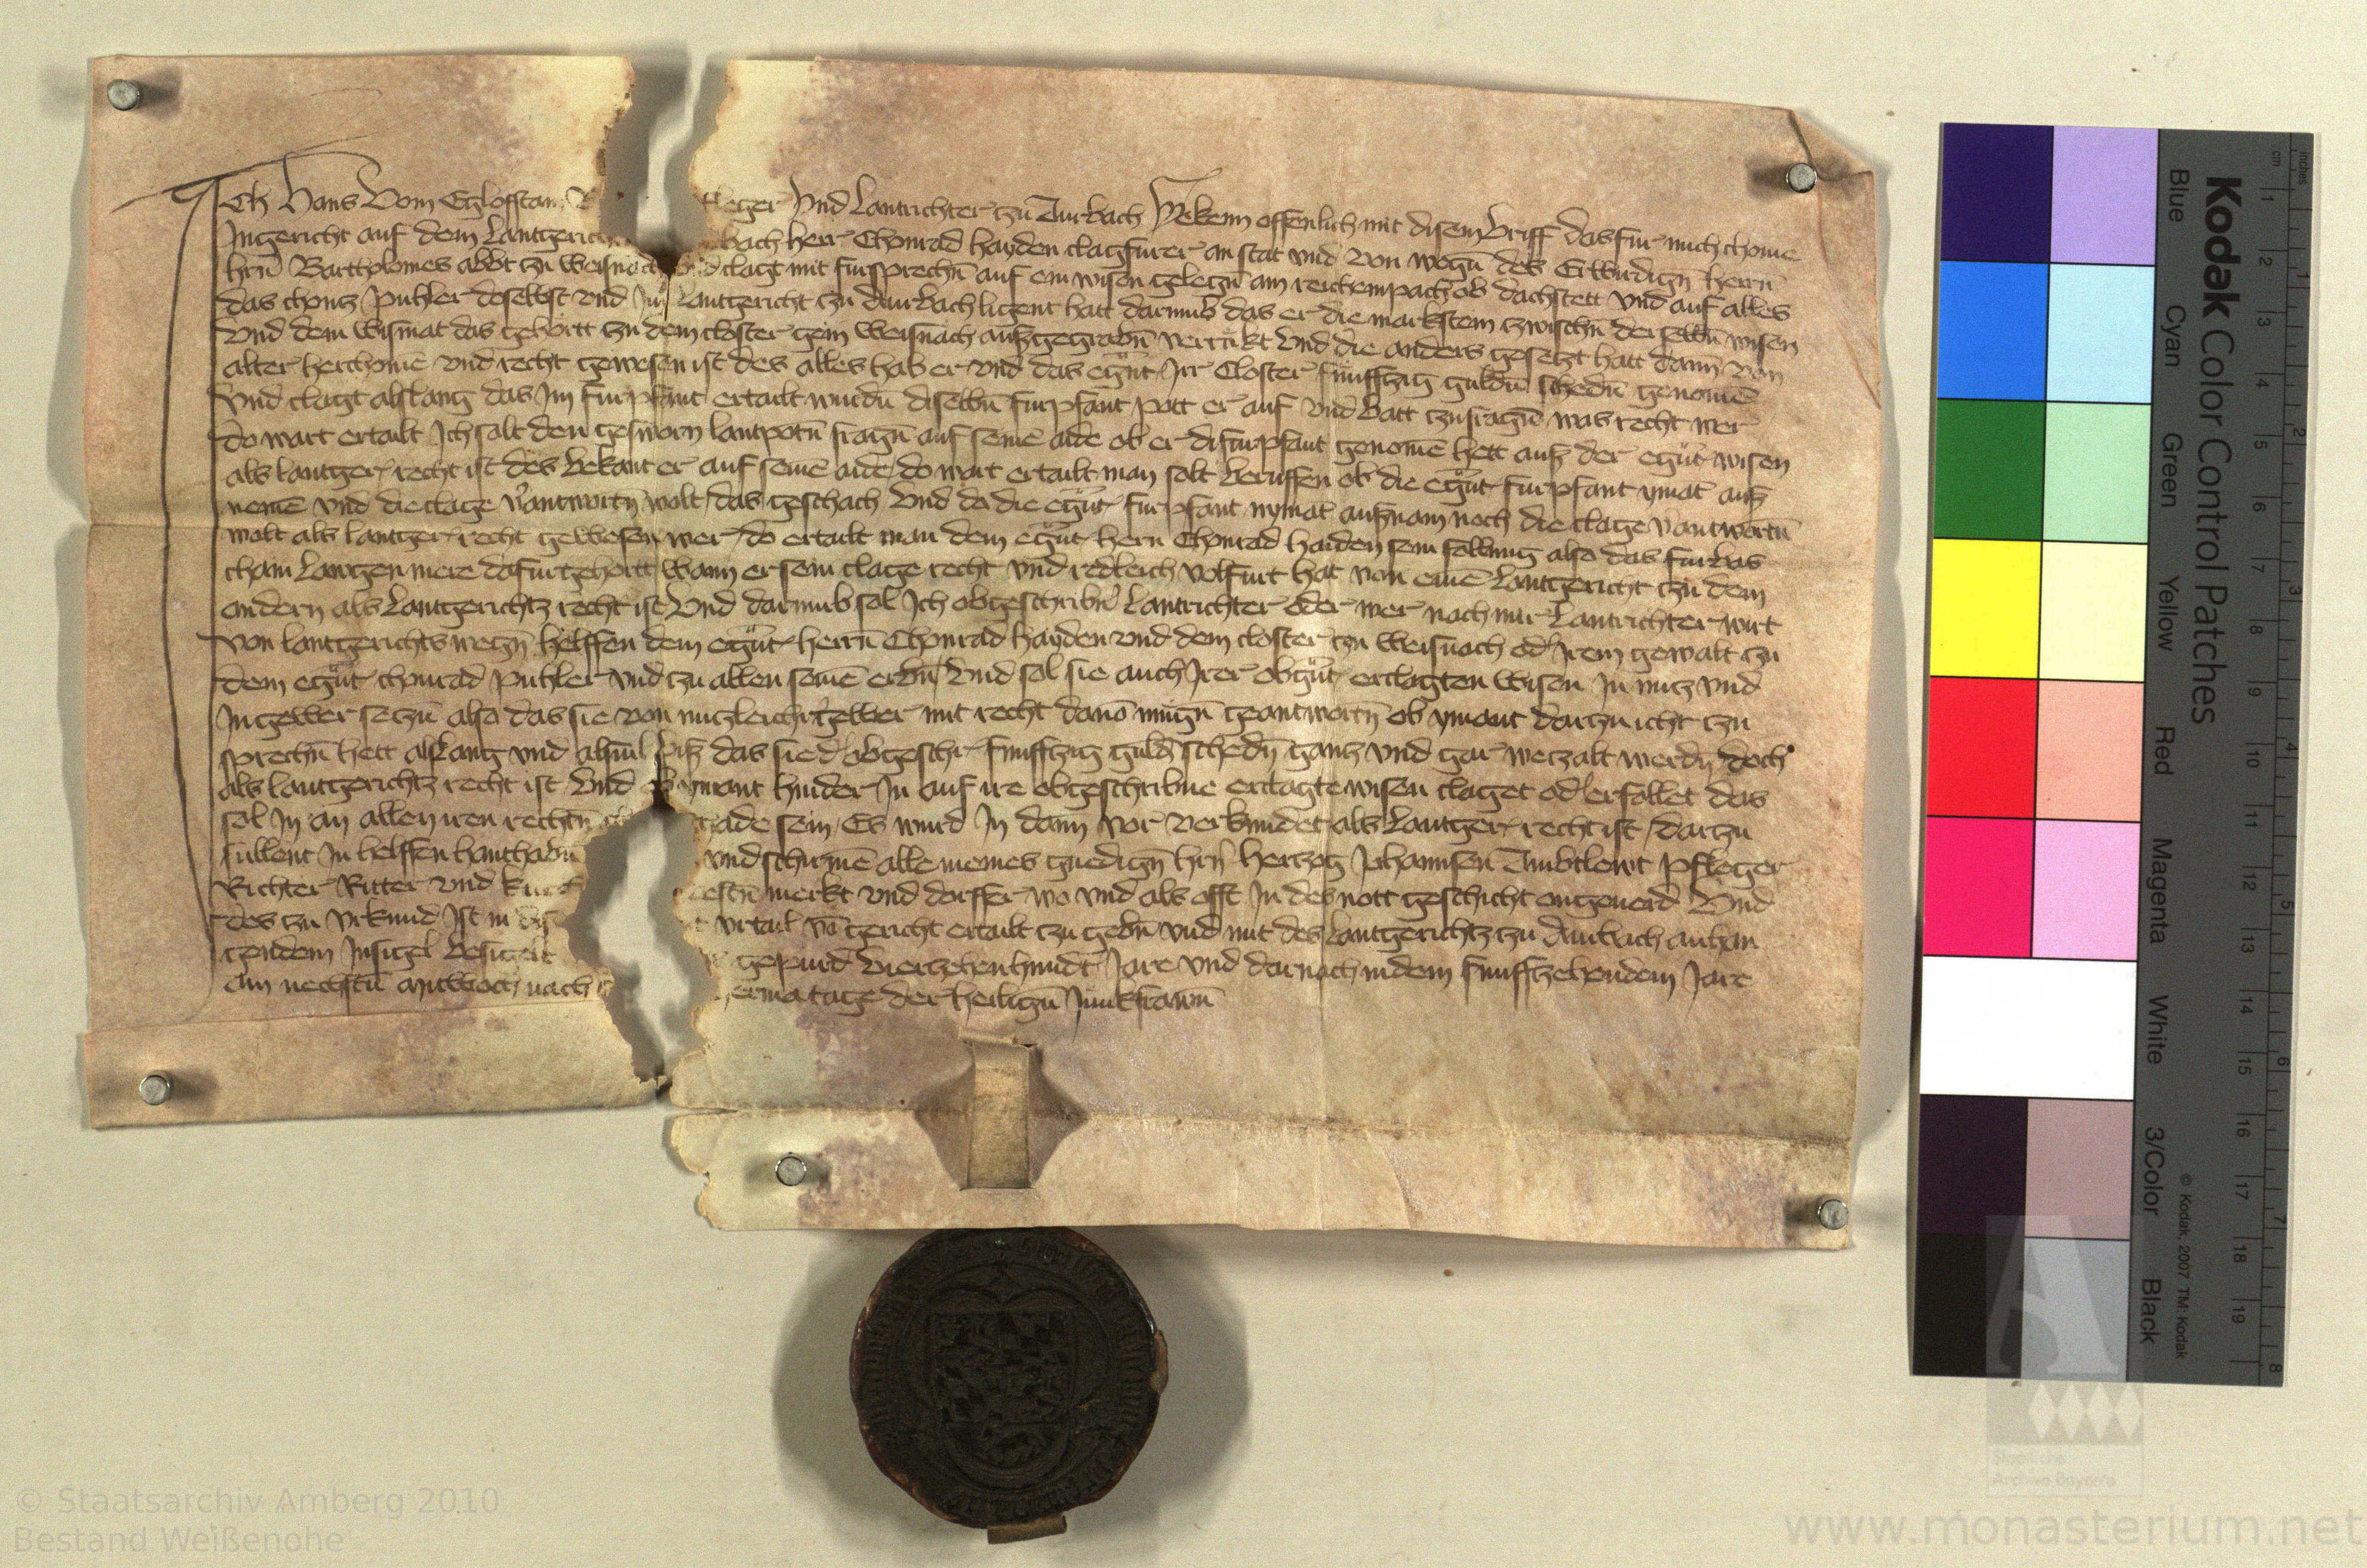 Ich Hans Vom Eglofstain R fleger Vnd Lantrichter czu Aurbach Bekenn offenlich mit disem briff das fur mich chome
Ingericht auf dem Lantgerich bach herr Chonrad hayden clagfurer an stat vnd von wegn des Erwirdign herrn
hrn Bartholomes abbt czu Weisnach vnd clagt mit fursprechn auf ein wisen gelegn am reichempach ob dachstett vnd auf alles
das chuncz puhler doselbst vnd Im Lantgericht czu Aurbach ligent hatt darumb das er die markstein czwischn derselbn wisen
Vnd dem wismat das gehortt czu dem closter gein Weisnach auszgegrabn verrukt Vnd die anders geseczt hatt dann von
alter herchome vnd recht gewesen ist des alles hab er vnd das egut Irr Closter funffczig guldn schedn genome
Vnd clagt alslang das Im furpfant ertailt wurdn diselbn furpfant pott er auf vnd batt czufragn was recht wer
do wart ertailt Ich solt den gesworn lantpotn fragn auf seine aide ob er di furpfant genome hett ausz der egut wisen
als lantger recht ist des bekant er auf seine aide do wart ertailt man solt beruffen ob die egut furpfant ymat ausz
neme vnd die clage vantwortn wolt das geschach Vnd do die egut furpfant nymat ausznam noch die clage vantwortn
wolt als lantger recht gewesen wer do ertailt man dem egut hern Chonrad haiden sein follung also das furbas
chain Laugen mere dafur gehortt Wann er sein clage recht vnd redleich volfurt hat von eine Lantgericht czu dem
andern als Lantgerichtz recht ist Vnd darumb sol Ich obgeschribn Lantrichter oder wer nach mir Lantrichter wirt
von lantgerichts wegn helffen dem egut herrn Chonrad hayden vnd dem closter czu Weisnach od Irem gewalt czu
dem egut chonrad puhler vnd czu allen seine erbn Vnd sol sie auch Irer obgut erclagten wisen In nucz vnd
In gewer seczn also das sie von nuczleicher gewer mit recht dauo mugn geantwortn ob ymant darczu icht czu
sprechn hett alslang vnd alsuil pisz das sie d obgeschr funffczig guld schedn gancz vnd gar weczalt werdn doch
als lantgerichtz recht ist Vnd ob ymant hinder In auf ire obgeschribne erclagte wisen claget od erfollet das
sol In an allen iren rechtn schade sein Es wurd In dann vor verkundet als Lantger recht ist darczu
sullent In helffen hanthabn vnd schirme alle meines gnedign hrn herczog Johannsen Ambtlewt Pfleger
Richter Ritter vnd kne vestn merkt vnd dorffer wo vnd als offt In des nott geschicht ongeuerd Vnd
des czu vrkund Ist in dis vrtail vo gericht ertailt czu gebn vnd mit des Lantgerichtz czu Aurbach anhan
gendem Insigel besigelt gepurd Vierczehenhundt Jare vnd darnach in dem funffczehendem Jare
Am nechstn mitwoch nach tage der heiligun Junkfrawn
Kodak Color Control Patches
Blue Cyan Green Yellow Red Magenta White 3/Color Black
© Kodak, 2007 TM: Kodak
inches 1 2 3 4 5 6 7 8
cm 1 2 3 4 5 6 7 8 9 10 11 12 13 14 15 16 17 18 19
Staatliche
Archive Bayerns
© Staatsarchiv Amberg 2010
Bestand Weißenohe
www.monasterium.net